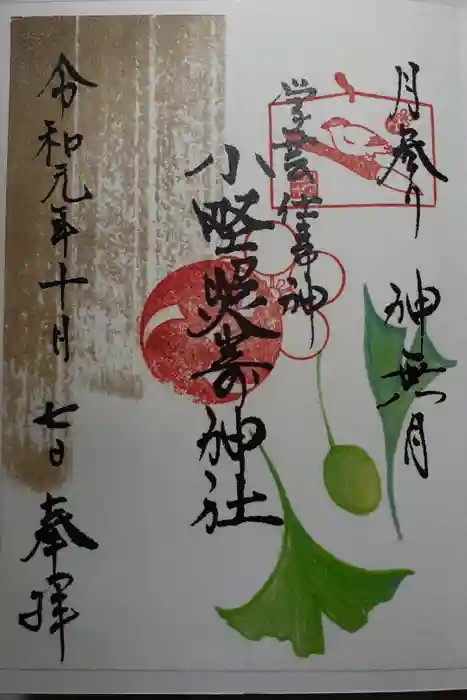 月参り 神無月
学芸仕事神
小野照崎神社
令和元年十月七日 奉拝